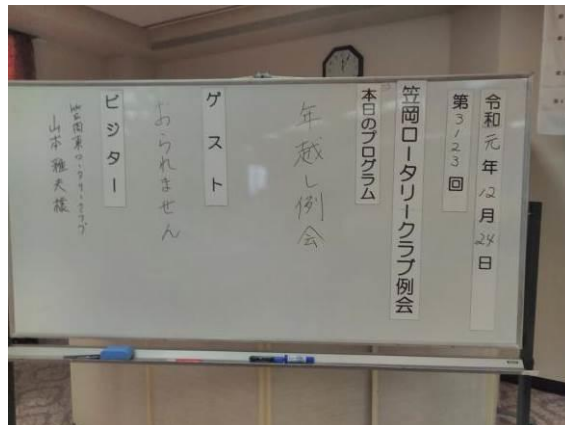 令和元年12月24日
第3123回
笠岡ロータリークラブ例会
本日のプログラム
年越し例会
ゲスト
おられません
ビジター
笠岡東ロータリークラブ
山本雅夫様